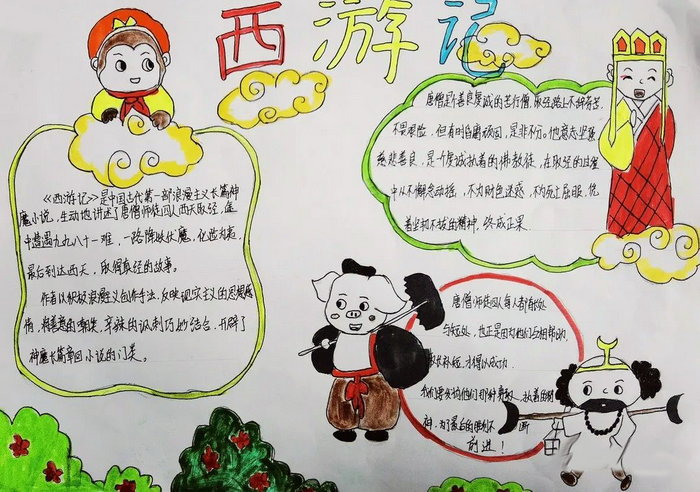 西游记
《西游记》是中国古代第一部浪漫主义长篇神
魔小说，生动地讲述了唐僧师徒四人西天取经，途
中遭遇九九八十一难，一路降妖伏魔，化险为夷，
最后到达西天，取得真经的故事。
作者以积极浪漫主义创作手法，反映现实主义的思想感
情，将善意的嘲笑，辛辣的讽刺巧妙结合，开辟了
神魔长篇章回小说的门类。
唐僧是个善良虔诚的苦行僧，取经路上不辞劳苦，
不畏艰险，但有时自庸顽固，是非不分。他意志坚强
慈悲善良，是个虔诚执着的佛教徒，在取经的过程
中从不懈怠动摇，不为财色迷惑，不为死亡屈服，凭
着坚韧不拔的精神，终成正果。
唐僧师徒四人每人都有长处
与短处，也正是因为他们互相帮助，
取长补短，才得以成功。
我们要为他们
执着的精
神，为了最后的胜利不断
前进！